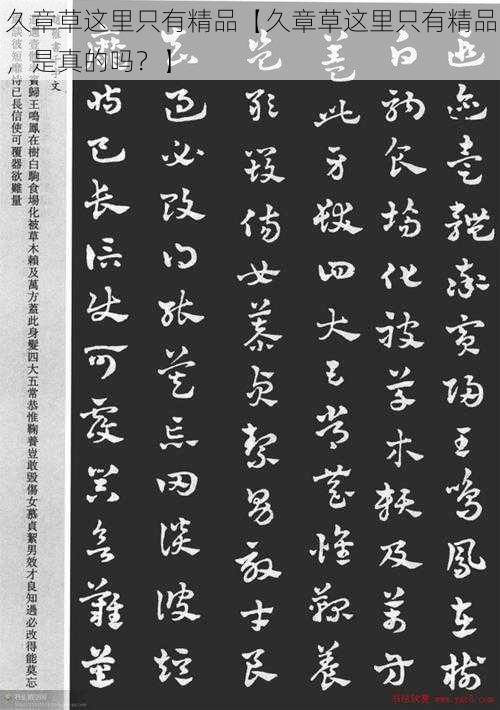 久章草这里只有精品【久章草这里只有精品
，是真的吗？】
遐邇壹體率賓歸王鳴鳳在樹
白駒食場化被草木賴及萬方
蓋此身髮四大五常恭惟鞠養
豈敢毀傷女慕貞絜男效才良
知過必改得能莫忘罔談彼短
靡恃己長信使可覆器欲難量
文
賓歸王鳴鳳在樹白駒食場化被草木賴及萬方蓋此身髮四大五常恭惟鞠養豈敢毀傷女慕貞絜男效才良知過必改得能莫忘
談彼短靡恃己長信使可覆器欲難量
书法欣赏 www.yac8.com